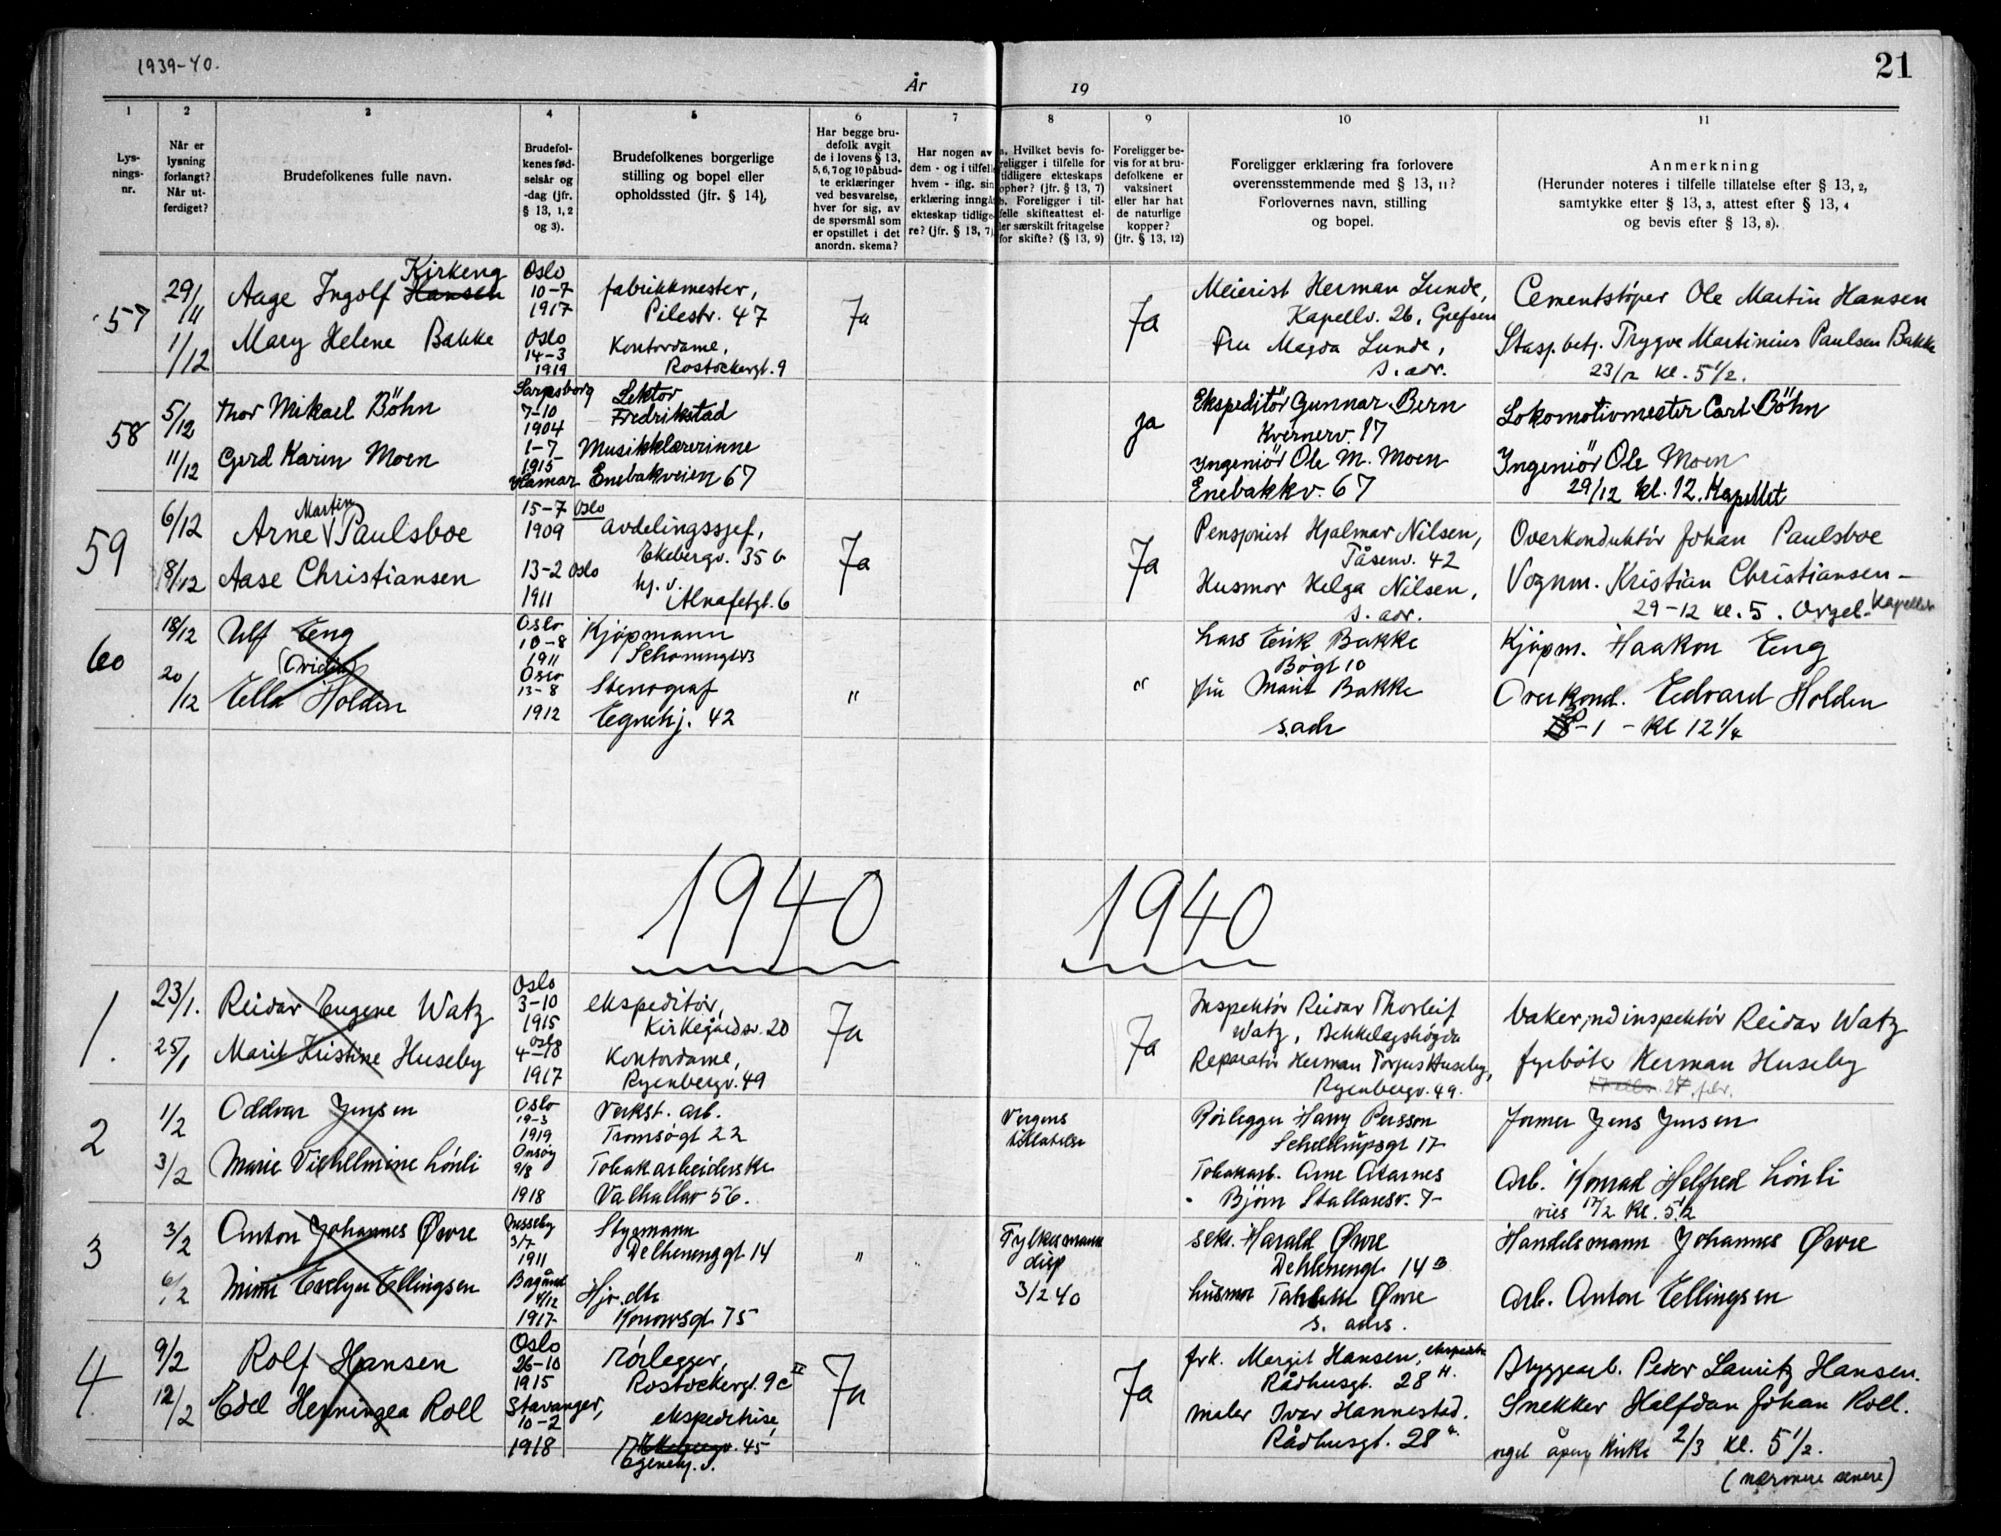 1939-40.
År
19
21
1
2
3
4
5
6
7
8
9
10
11
Lys-
nings-
nr.
Når er
lysning
forlangt?
Når ut-
ferdiget?
Brudefolkenes fulle navn.
Brudefol-
kenes fød-
selsår og
-dag (jfr.
§ 13, 1, 2
og 3).
Brudefolkenes borgerlige
stilling og bopel eller
opholdssted (jfr. § 14),
Har begge bru-
defolk avgit
de i lovens § 13,
5, 6, 7 og 10 påbud-
te erklæringer
ved besvarelse,
hver for sig, av
de spørsmål som
er opstillet i det
anordn. skema?
Har nogen av
dem - og i tilfelle
hvem - iflg. sin
erklæring inngåt
ekteskap tidlige-
re? (jfr. § 13, 7)
a. Hvilket bevis fo-
religger i tilfelle for
tidligere ekteskaps
ophør? (jfr. § 13, 7)
b. Foreligger i til-
felle skifteattest el-
ler særskilt fritagelse
for skifte? (§ 13, 9)
Foreligger be-
vis for at bru-
defolkene er
vaksinert
eller har hat
de naturlige
kopper?
(jfr. § 13, 12)
Foreligger erklæring fra forlovere
overensstemmende med § 13, 11?
Forlovernes navn, stilling
og bopel.
Anmerkning
(Herunder noteres i tilfelle tillatelse efter § 13, 2,
samtykke efter § 13, 3, attest efter § 13, 4
og bevis efter § 13, 8).
57
29/11
1/12
Kirkeng
Aage Ingolf Hansen
Mary Helene Bakke
Oslo
10-7
1917
Oslo
14-3
1919
fabrikkmester,
Pilestr. 47
Kontordame,
Rostockergt. 9
Ja
Ja
Meierist Herman Lunde,
Kapellv. 26, Grefsen
Fru Magda Lunde,
s. adr.
Cementstøper Ole Martin Hansen
Stasj.betj. Trygve Martinius Paulsen Bakke
23/12 kl. 5 1/2.
58
5/12
11/12
Thor Mikael Böhn
Gerd Karin Moen
Sarpsborg
7-10
1904
1-7
1915
Hamar
Lektor
Fredrikstad
Musikklærerinne
Enebakveien 67
ja
Ekspeditör Gunnar Bern
Kvernerv. 17
Ingeniör Ole M. Moen
Enebakkv. 67
Lokomotivmester Carl Böhn
Ingeniör Ole Moen
29/12 kl. 12. Kapellet
59
6/12
8/12
Martin
Arne Paulsboe
Aase Christiansen
15-7 Oslo
1909
13-2 Oslo
1911
avdelingssjef,
Ekebergv. 35 b
hj. v.
Alnafetgt. 6
Ja
Ja
Pensjonist Hjalmar Nilsen,
Tåsenv. 42
Husmor Helga Nilsen,
s. adr.
Overkonduktör Johan Paulsboe
Vognm. Kristian Christiansen -
29-12 kl. 5. Orgel- Kapellet
60
18/12
20/12
Ulf Eng
Ella Holden
Oslo
10-8
1911
Oslo
13-8
1912
Kjøpmann
Stenograf
Egnehj. 42
"
"
Lars Erik Bakke
Bøgt 10
fru Marit Bakke
s.adr
Kjøpm. Haakon Eng
Overkond. Edvard Holden
-1 - kl 12 1/4
1940
1940
1.
23/1.
25/1
Reidar Eugene Watz
Marit Kristine Huseby
Oslo
3-10
1915
Oslo
4-
1917
ekspeditör,
Kirkegårdsv. 20
Kontordame,
Ryenbergv. 49
Ja
Ja
Inspektör Reidar Thorleif
Watz, Bekkelagshögda
Reparatör Herman Torjus Huseby,
Ryenbergv. 49.
Reidar Watz
fyrböter Herman Huseby
2
1/2
3/2
Oddvar Jensen
Marie Vilhelmine Lönli
Oslo
19-3
1919
Onsøy
9/8
1918
Verkst. arb.
Tromsögt 22
Tobakarbeiderske
Valhallav 56.
Verges
tillatelse
Rörlegger Harry Persson
Schultrupsgt 17
Tobakarb. Arne Aarnes
Bjørn Stallaresv. 7-
Former Jens Jensen
Arb. Konrad Helfred Lönli
vies 17/2 kl. 5 1/2
3
3/2
6/2
Anton Johannes Øvre
Mimi Evelyn Ellingsen
3/7
1911
4/12
1917
Styrmann
Delhenenggt 14
Hjv. dtr
Konowsgt 75
"
Fylkesmann
disp
3/2 40
sekr. Harald Øvre
Dehlenengt 14 B
husmor Øvre
s. adrs.
Handelsmann Johannes Øvre
Arb. Anton Ellingsen
4.
9/2
12/2
Rolf Hansen
Edel Henningea Roll
Oslo
26-10
1915
Stavanger,
10-2
1918
rörlegger,
Rostockergt. 9c II
ekspeditrise,
Ekebergv. 45
Egnehj. v.
Ja
Ja
frk. Margit Hansen,
Rådhusgt. 28 H.
maler Ivar Hannestad.
Rådhusgt. 28
Bryggearb. Peder Lauritz Hansen.
Snekker Halfdan Johan Roll.
orgel åpen kirke 2/3 kl. 5 1/2.
(nærmere senere)